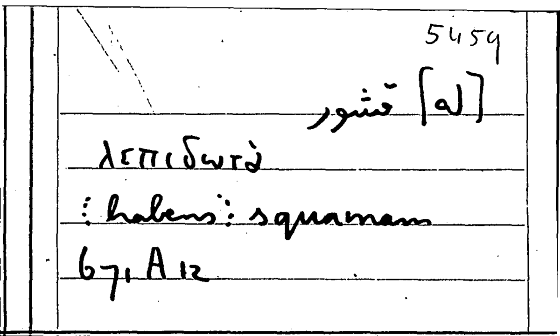 5459
[له] قشور
λεπιδωτὰ
⋮habens⋮ squamam
671 A 12